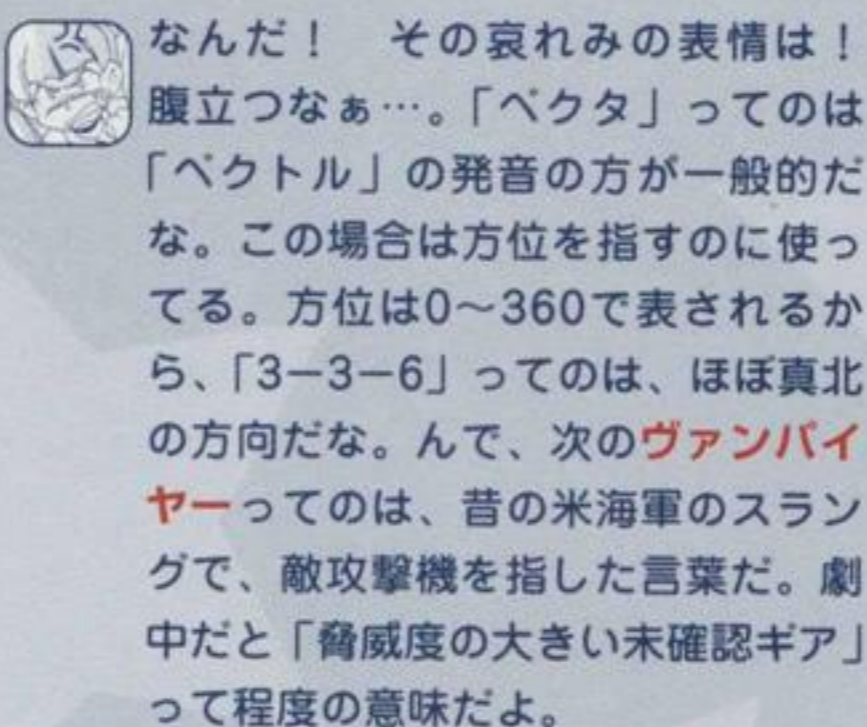 なんだ!　その哀れみの表情は!
腹立つなぁ…。「ベクタ」ってのは
「ベクトル」の発音の方が一般的だ
な。この場合は方位を指すのに使っ
てる。方位は0〜360で表されるか
ら、「3ー3ー6」ってのは、ほぼ真北
の方向だな。んで、次のヴァンパイ
ヤーってのは、昔の米海軍のスラン
グで、敵攻撃機を指した言葉だ。劇
中だと「脅威度の大きい未確認ギア」
って程度の意味だよ。